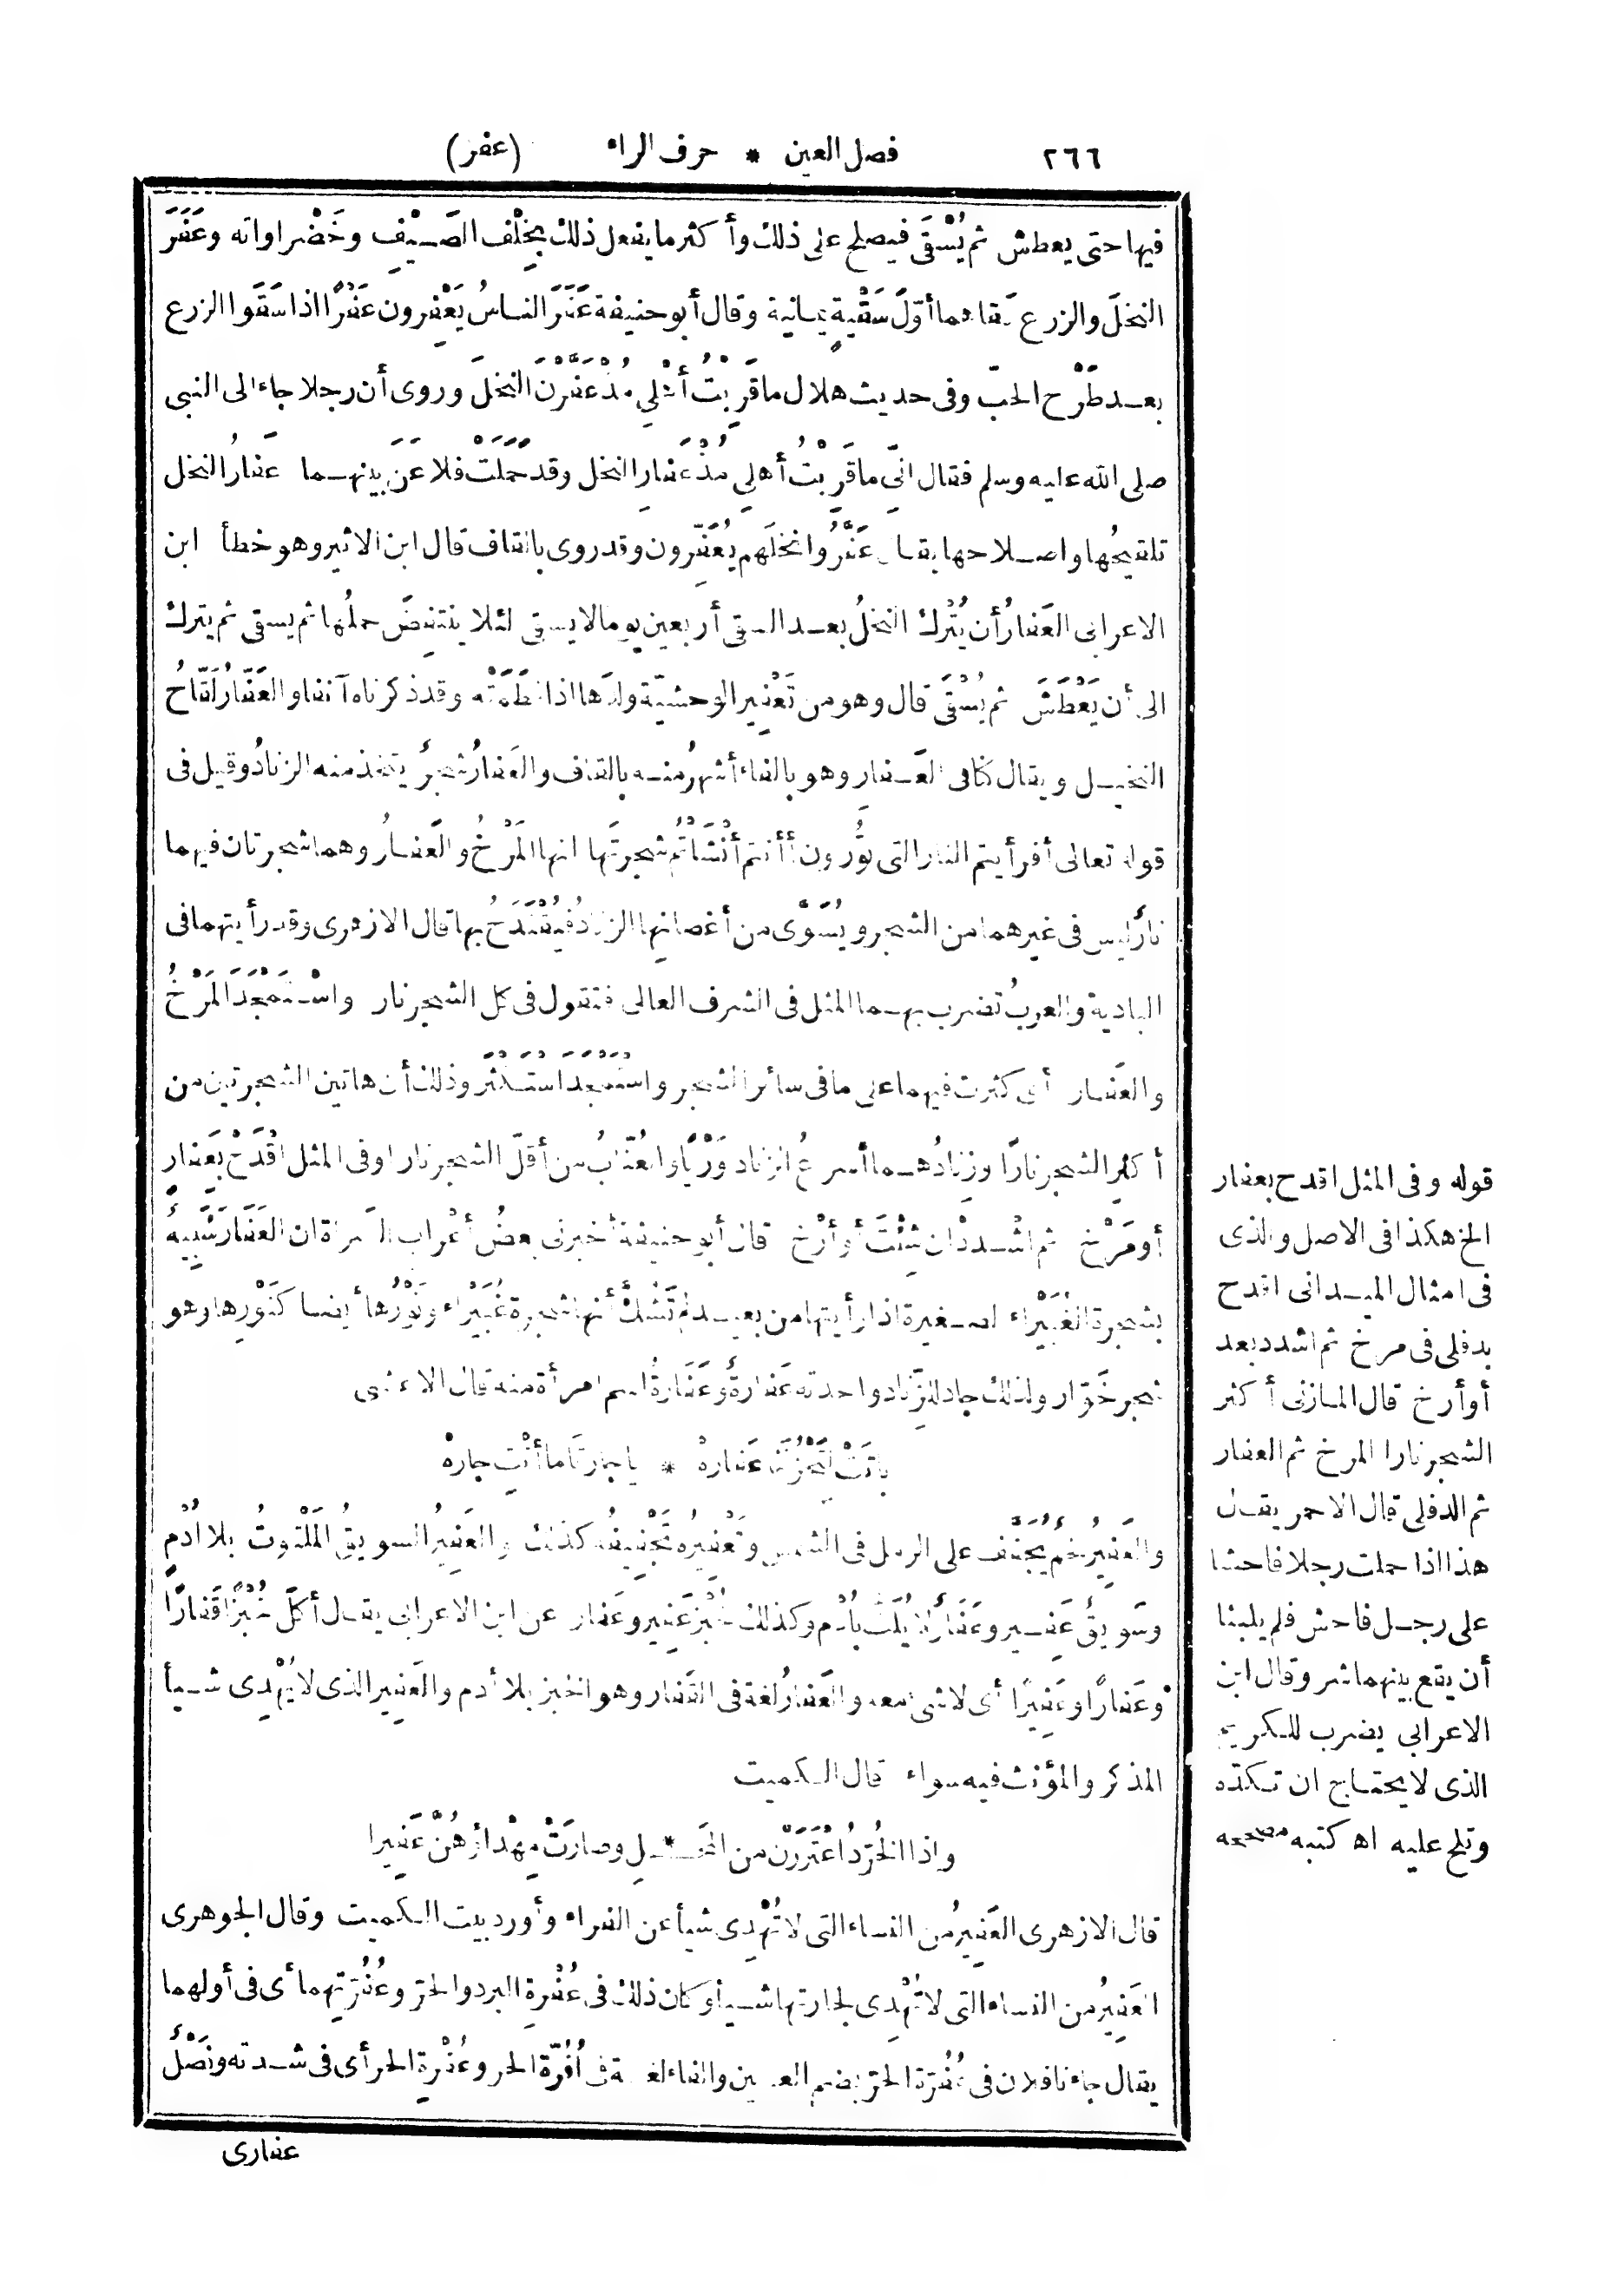 ٢٦٦ فصل العين * حرف الراء (عفر)
فيها حتى يعطش ثم يُسْقَى فيصلح على ذلك وأكثر ما يفعل ذلك بِخِلْف الصَّيْفِ وخَضْراواته وعَفَرَ
النخلَ والزرع سقاهما أوّلَ سَقْيةٍ يمانية وقال أبو حنيفة عَفَرَ الناسُ يَعْفِرون عَفْرًا اذا سَقَوا الزرع
بعد طَرْح الحبّ وفى حديث هلال ما قَرِبْتُ أهْلِي مُذْ عَفَّرْنَ النخلَ وروى أن رجلا جاء الى النبى
صلى الله عليه وسلم فقال انّى ما قَرِبْتُ أهلِي مُذْ عَفارِ النخل وقد حَمَلَتْ فلاعَنَ بينهما عَفارُ النخل
تلقيحُها واصلاحها يقال عَفَّرُوا نخلَهم يُعَفِّرون وقد روى بالقاف قال ابن الاثير وهو خطأ ابن
الاعرابى العَفارُ أن يُتْرك النخلُ بعد السقى أربعين يوما لا يسقى لئلا ينتفِضَ حملُها ثم يسقى ثم يترك
الى أن يَعْطَشَ ثم يُسْقَى قال وهو من تَعْفِير الوحشيّة ولدَها اذا فَطَمَتْه وقد ذكرناه آنفا والعَفَّارُ لَقّاحُ
النخيل ويقال كنا فى العَفار وهو بالفاء أشهرُ منه بالقاف والعَفارُ شجرٌ يتخذ منه الزنادُ وقيل فى
قوله تعالى أفرأيتم النار التى تُورون أأنتم أنْشَأتُم شجرتَها انها المَرْخُ والعَفارُ وهما شجرتان فيهما
نارٌ ليس فى غيرهما من الشجر ويُسَوَّى من أغصانها الزنادُ فيُقْتَدَحُ بها قال الازهرى وقد رأيتهما فى
البادية والعربُ تضرب بهما المثل فى الشرف العالى فتقول فى كل الشجر نار واسْتَمْجَدَ المَرْخُ
والعَفار أى كثرت فيهما على ما فى سائر الشجر واسْتَمْجَدَ اسْتَكْثَر وذلك أن هاتين الشجرتين من
أكثرِ الشجر نارًا وزِنادُهما أسرعُ الزناد وَرْيًا والعُنّابُ من أقلّ الشجر نارا وفى المثل اقْدَحْ بعَفارٍ
أو مَرْخ ثم اشْدُدْ ان شِئْتَ أو أَرْخ قال أبو حنيفة أخبرنى بعضُ أعْراب السراة ان العَفَارَ شَبِيهٌ
بشجرة الغُبَيْراء الصغيرة اذا رأيتها من بعيد لم تَشُكَّ أنها شجرة غُبَيْراء ونَوْرُها أيضا كنَوْرِها وهو
شجر خَوّار ولذلك جاد للزّناد واحدته عَفارةٌ وعَفَارةُ اسم امرأة منه قال الاعشى
باتَتْ لِتَحْزُنَنَا عَفارهْ * يا جارتَا ما أنْتِ جارهْ
والعَفِيرُ لحم يُجَفَّف على الرمل فى الشمس وتَعْفِيرُه تَجْفِيفُه كذلك والعَفِيرُ السويقُ المَلْتوتُ بلا اُدْمٍ
وسَوِيقٌ عَفِير وعَفَارٌ لا يُلَتُّ بأُدْم وكذلك خُبْز عَفِير وعَفار عن ابن الاعرابى يقال أكل خُبْزا قَفارًا
وعَفارًا وعَفِيرًا أى لا شئ معه والعَفارُ لغة فى القَفار وهو الخبز بلا أدم والعَفِير الذى لا يُهْدِى شيأ
المذكر والمؤنث فيه سواء قال الكميت
واذا الخُرَّدُ اعْتَرَرْن من المَحْـ * ـلِ وصارَتْ مِهْداؤهُنّ عَفِيرا
قال الازهرى العَفِيرُ من النساء التى لا تُهْدِى شيأ عن الفراء وأورد بيت الكميت وقال الجوهرى
العَفِيرُ من النساء التى لا تُهْدِى لجارتها شيأ وكان ذلك فى عُفْرةِ البرد والحرّ وعُفُرَّتِهما أى فى أولهما
يقال جاءنا فلان فى عُفُرّة الحرّ بضم العين والفاء لغة فى اُفُرّة الحر وعُفْرةِ الحر أى فى شدته ونَصْلٌ
عفارى
قوله وفى المثل اقدح بعفار
الخ هكذا فى الاصل والذى
فى امثال الميدانى اقدح
بدفلى فى مرخ ثم اشدد بعد
أو أرخ قال المازنى أكثر
الشجر نارا المرخ ثم العفار
ثم الدفلى قال الاحمر يقال
هذا اذا حملت رجلا فاحشا
على رجل فاحش فلم يلبثا
أن يقع بينهما شر وقال ابن
الاعرابى يضرب للكريم
الذى لا يحتاج ان تكدّه
وتلح عليه اه كتبه مصححه